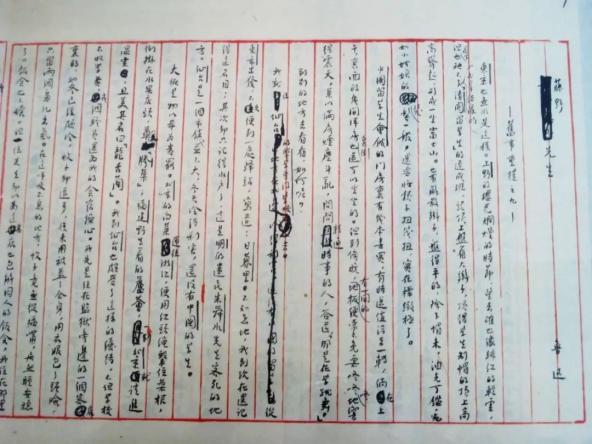 藤野先生
——舊事重提之九——
魯迅
東京也無非是這樣。上野的櫻花爛熳的時節,望去確也像緋紅的輕雲,
但花下也缺不了成群結隊的「清國留學生」的速成班,頭頂上盤着大辮子,頂得學生制帽的頂上高
高聳起,形成一座富士山。也有解散辮子,盤得平的,除下帽來,油光可鑑,宛
如小姑娘的髮髻一般,還要將脖子扭幾扭。實在標緻極了。
中國留學生會館的門房裏有幾本書買,有時還值得去一轉;倘在上
午,裏面的幾間洋房裏倒也還可以坐坐的。但到傍晚,有一間的地板便常不免要咚咚咚地響
得震天,兼以滿房煙塵斗亂;問問精通時事的人,答道,「那是在學跳舞。」
到別的地方去看看,如何呢?
我就往仙台的醫學專門學校去。從
東京出發,不久便到一處驛站,寫道:日暮里。不知怎地,我到現在還記
得這名目。其次卻只記得水戶了,這是明的遺民朱舜水先生客死的地
方。仙台是一個市鎮,並不大;冬天冷得利害;還沒有中國的學生。
大概是物以希為貴罷。北京的白菜運往浙江,便用紅頭繩繫住菜根,
倒掛在水果店頭,尊為「膠菜」;福建野生着的蘆薈,一到北京就請進
溫室,且美其名曰「龍舌蘭」。我到仙台也頗受了這樣的優待,不但學校
不收學費,幾個職員還為我的食宿操心。我先是住在監獄旁邊一個客店
裏的,初冬已經頗冷,蚊子卻還多,後來用被蓋了全身,用衣服包了頭臉,
只留兩個鼻孔出氣。在這呼吸不息的地方,蚊子竟無從插嘴,居然睡安穩
了。飯食也不壞。但一位先生卻以為這客店也包辦囚人的飯食,我住在那裏